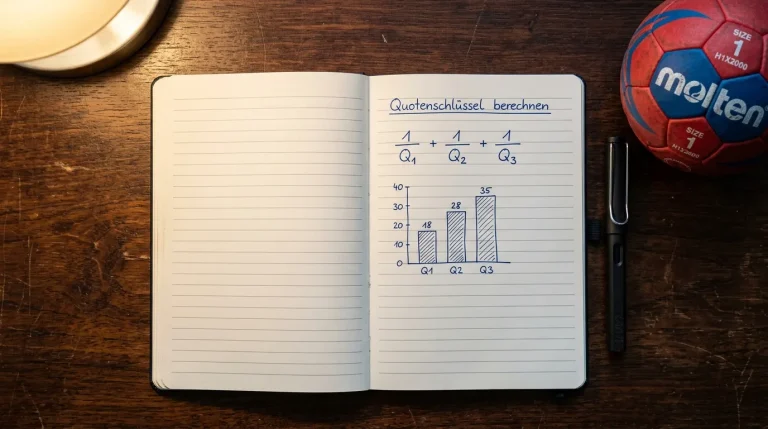 Quotenschlüssel berechnen
1/Q₁ + 1/Q₂ + 1/Q₃
40
30
20
10
0
18
28
35
Q1 Q2 Q3
SIZE
1
H1X2000
molten
SIZE
1
H1X2000